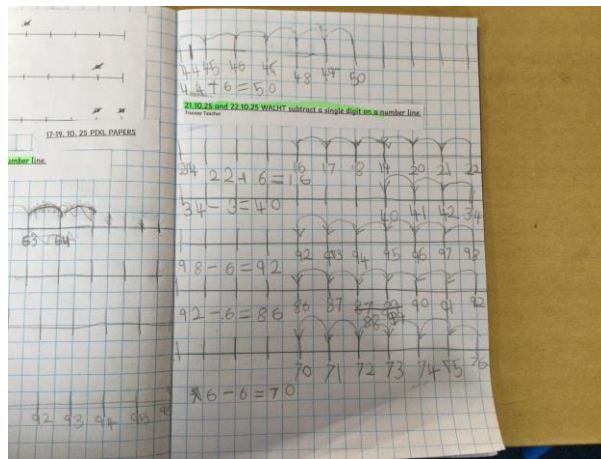 17-19. 10. 25 PIXL PAPERS
umber line.
63 64
92 93 94 95
44 45 46 48 49 50
44+6=50
21.10.25 and 22.10.25 WALHT subtract a single digit on a number line.
Trainee Teacher
16 17 18 19 20 21 22
22+6=16
40 41 42 34
34-3=40
92 93 94 95 96 97 98
98-6=92
86 87 88 90 91 92
92-6=86
70 71 72 73 74 75 76
76-6=70